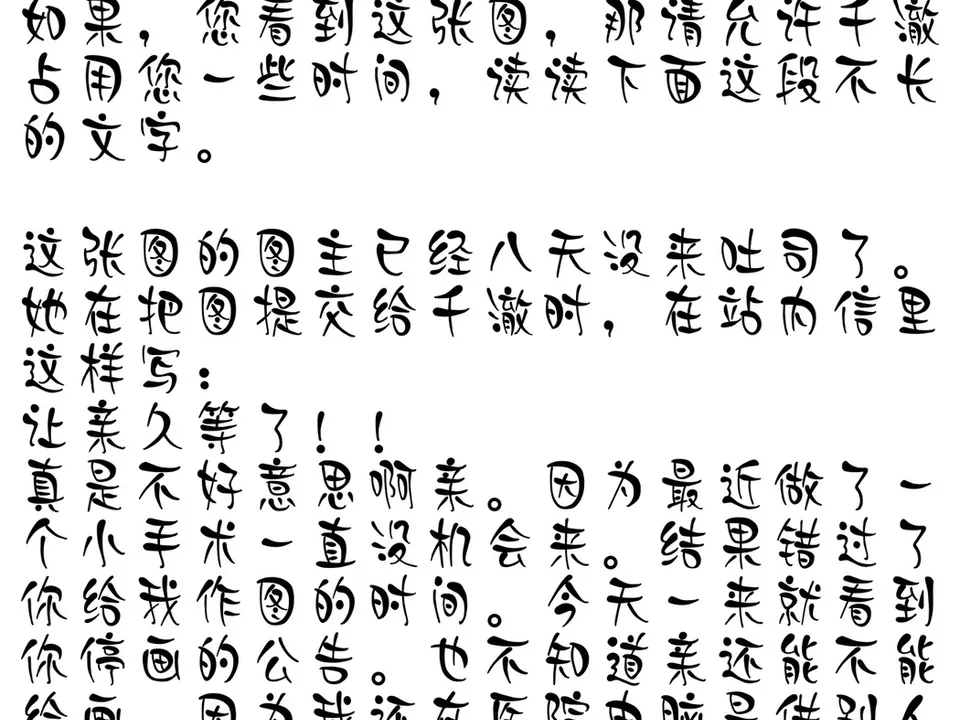 如果，您看到这张图，那请允许千澈
占用您一些时间，读读下面这段不长
的文字。
这张图的图主已经八天没来吐司了。
她在把图提交给千澈时，在站内信里
这样写：
让亲久等了！！
真是不好意思啊亲。因为最近做了一
个小手术一直没机会来。结果错过了
你给我作图的时间。今天一来就看到
你停画的公告。也不知道亲还能不能
给画。因为我还在医院电脑是借别人